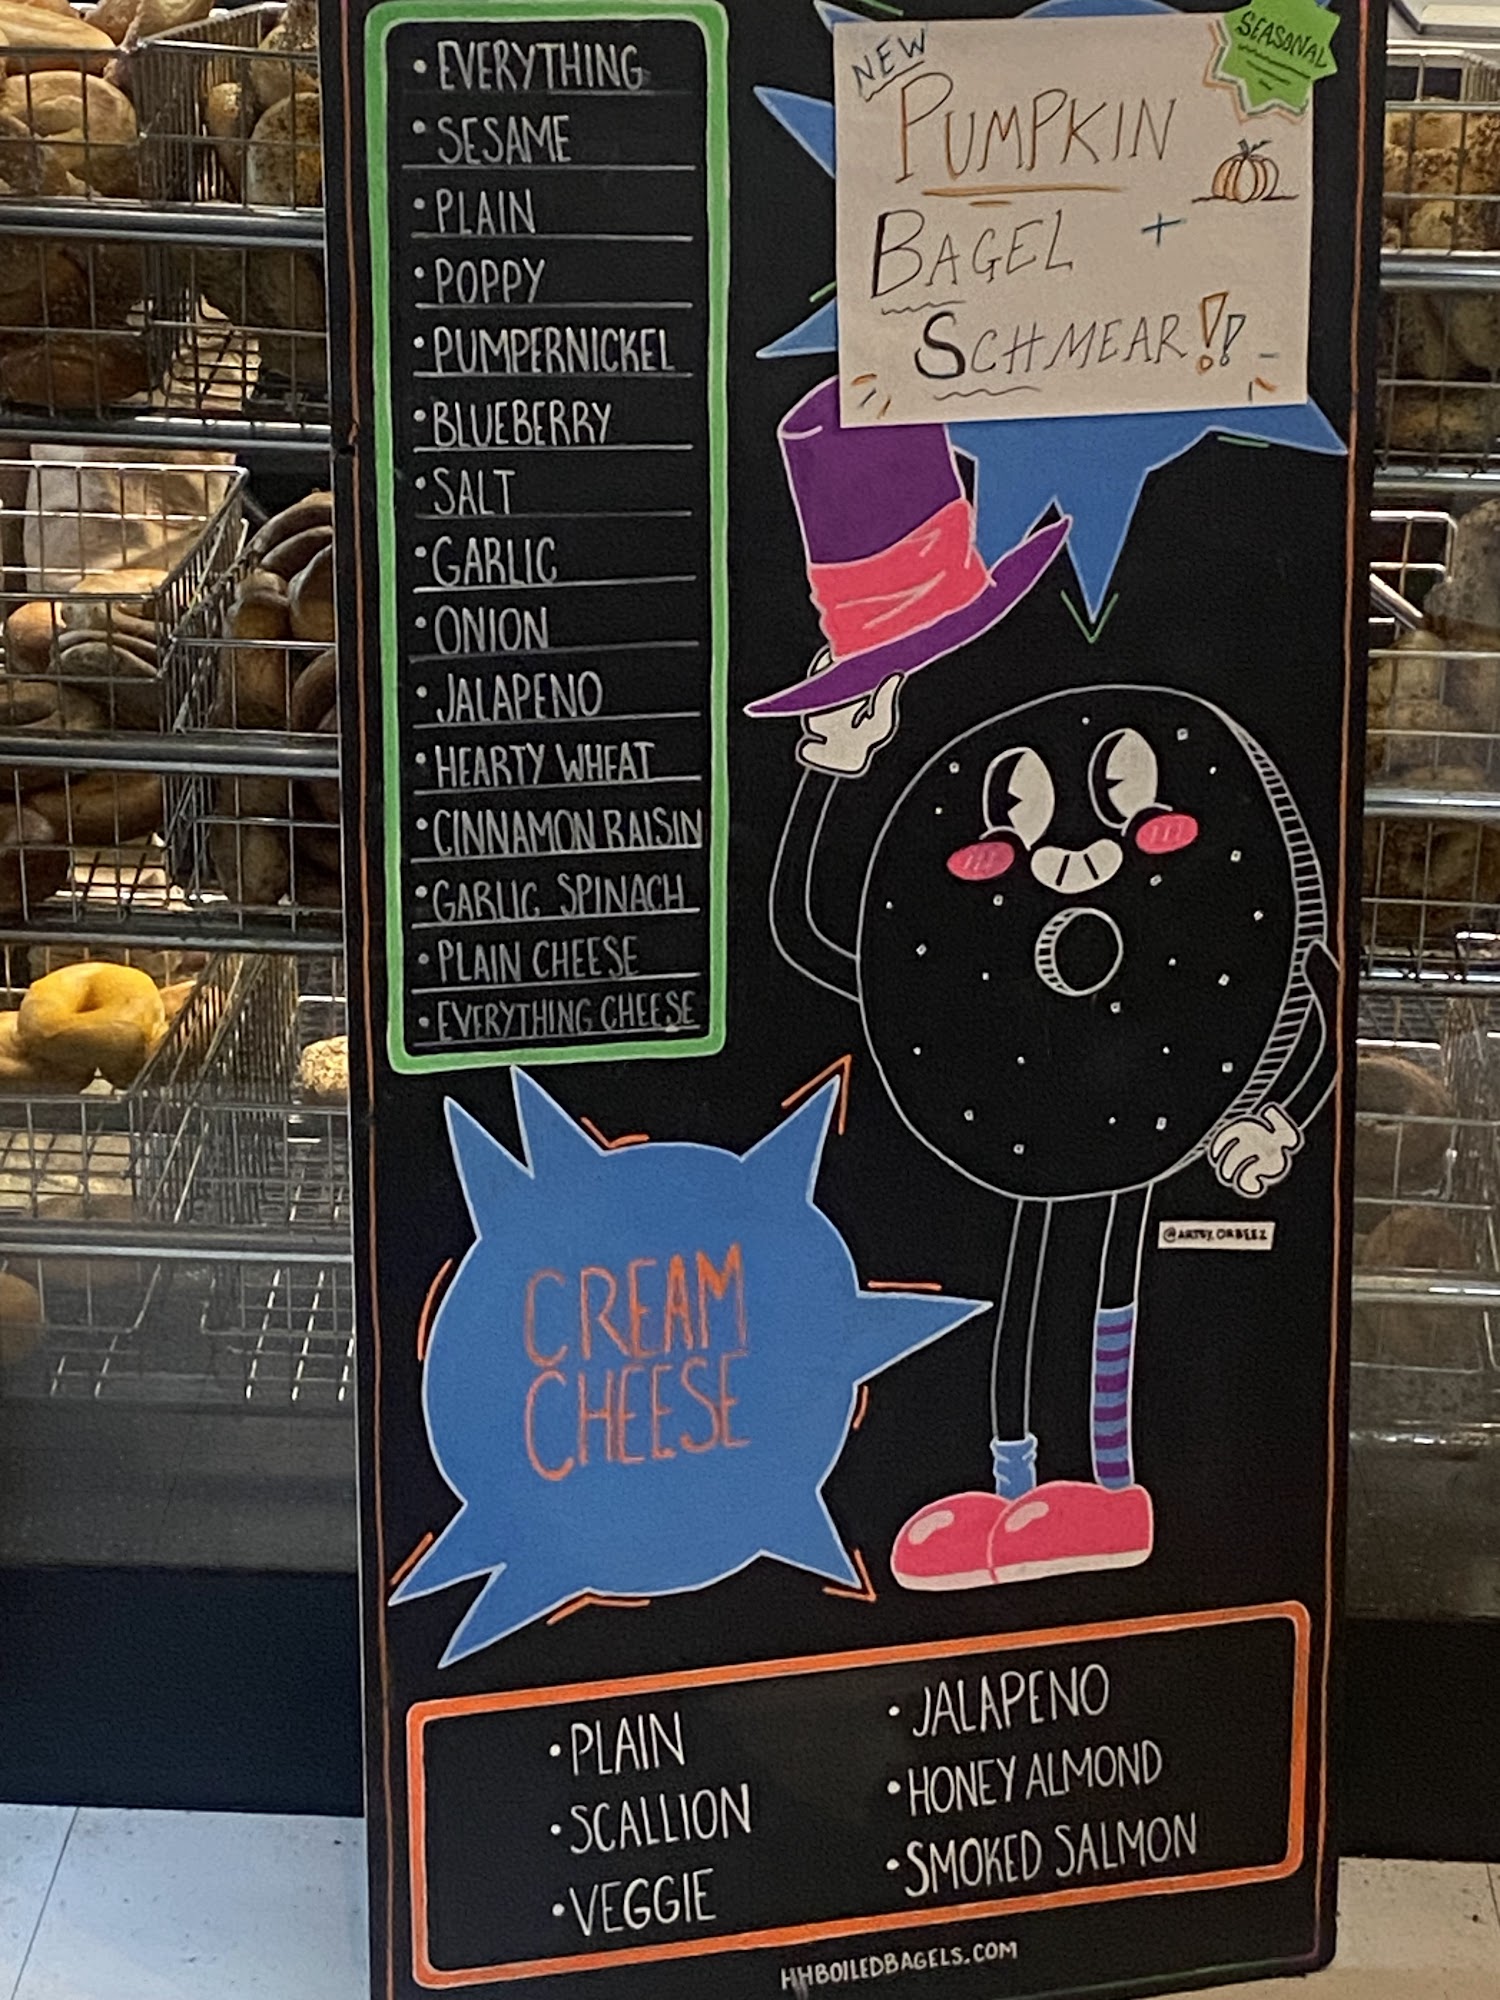 • EVERYTHING
• SESAME
• PLAIN
• POPPY
• PUMPERNICKEL
• BLUEBERRY
• SALT
• GARLIC
• ONION
• JALAPENO
• HEARTY WHEAT
• CINNAMON RAISIN
• GARLIC SPINACH
• PLAIN CHEESE
• EVERYTHING CHEESE
SEASONAL
NEW
PUMPKIN
BAGEL +
SCHMEAR!!
@ARTSY.ORBEEZ
CREAM
CHEESE
• PLAIN
• SCALLION
• VEGGIE
• JALAPENO
• HONEY ALMOND
• SMOKED SALMON
HHBOILEDBAGELS.COM